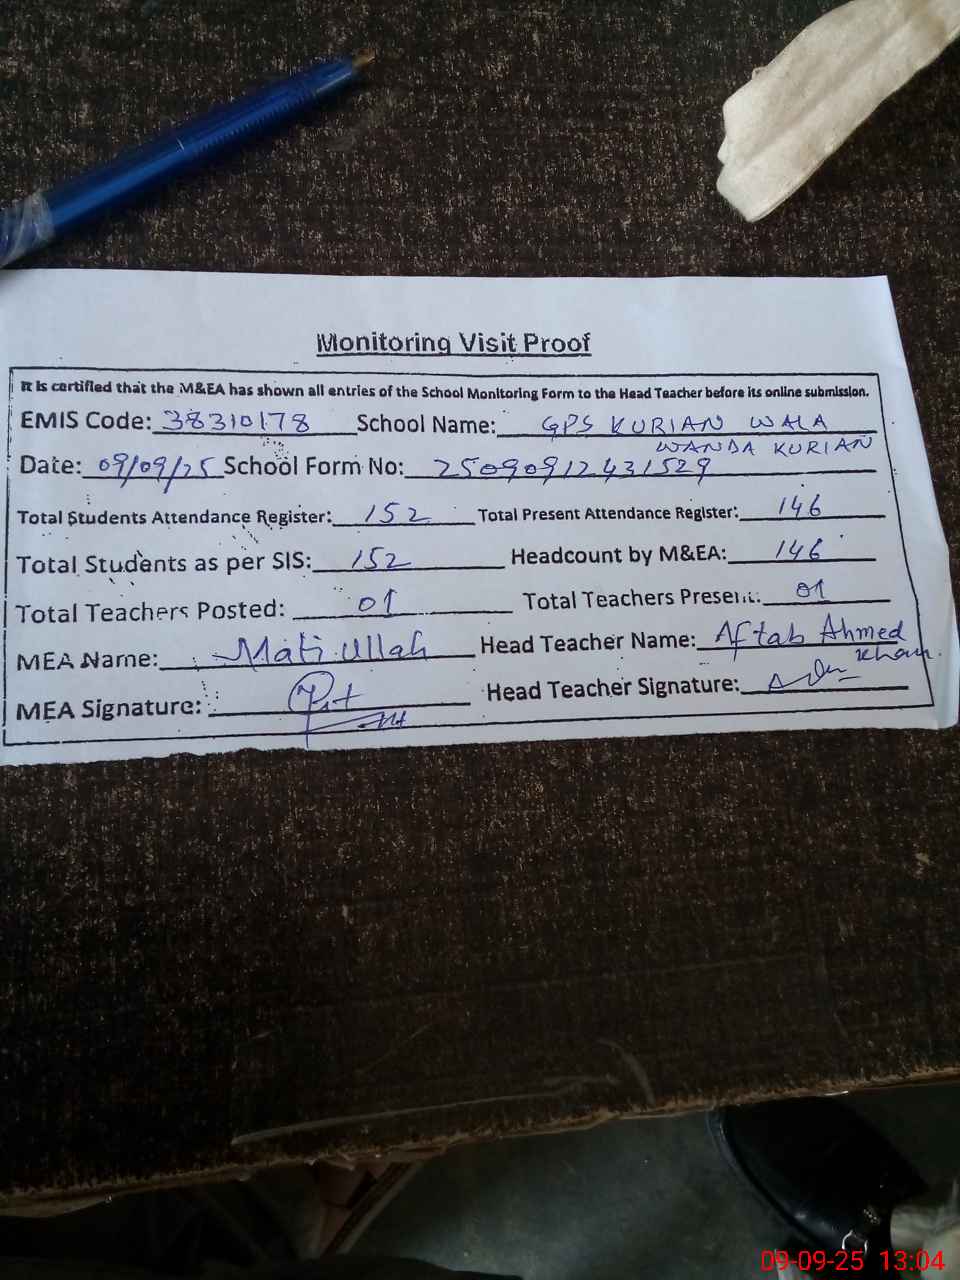 Monitoring Visit Proof
It is certified that the M&EA has shown all entries of the School Monitoring Form to the Head Teacher before its online submission.
EMIS Code: 38310178 School Name: GPS KURIAN WALA
WANDA KURIAN
Date: 09/09/25 School Form No: 25090912431529
Total Students Attendance Register: 152 Total Present Attendance Register: 146
Total Students as per SIS: 152 Headcount by M&EA: 146
Total Teachers Posted: 01 Total Teachers Present: 01
MEA Name: Mati Ullah Head Teacher Name: Aftab Ahmed
Khan.
MEA Signature: Head Teacher Signature:
09-09-25 13:04